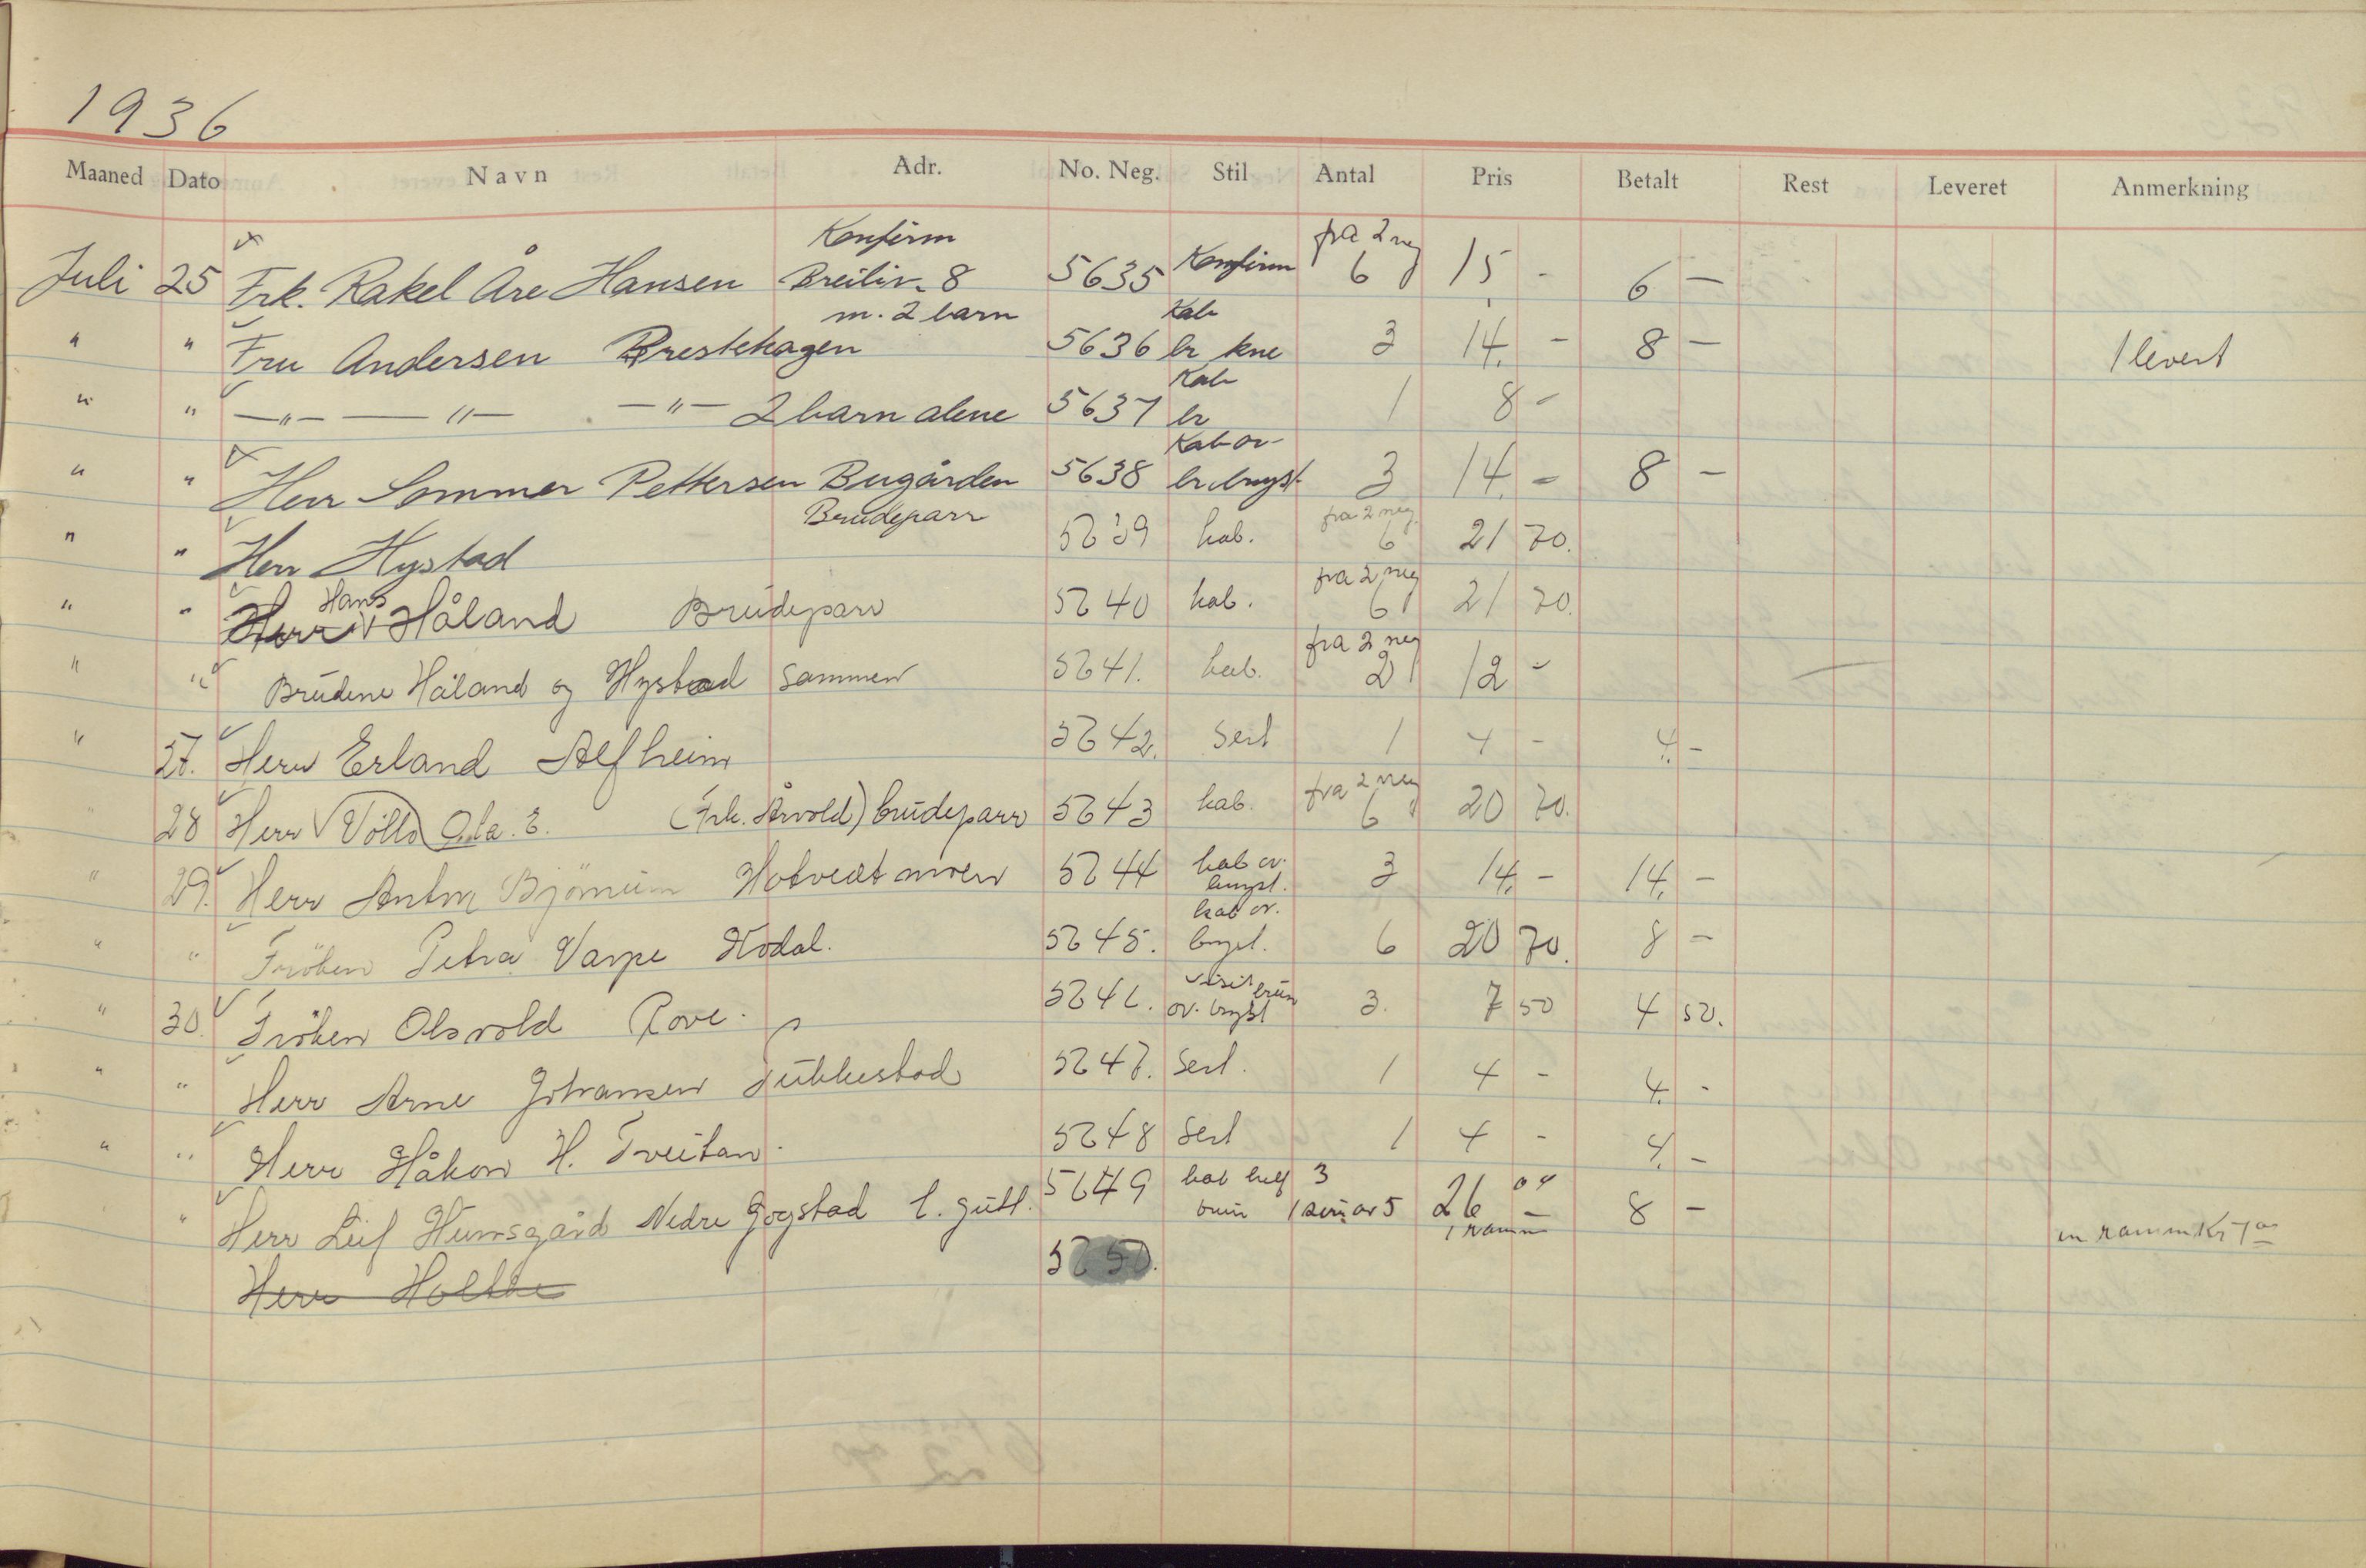 1936
Maaned Dato Navn Adr. No. Neg. Stil Antal Pris Betalt Rest Leveret Anmerkning
Konfirm fra 2 neg
Juli 25 Frk. Rakel Åre Hansen Breiliv. 8 5635 Konfirm 6 15 - 6 -
m. 2 barn Kab
" " Fru Andersen Prestehagen 5636 br kne 3 14. - 8 - 1 levert
Kab
" " -"- -"- -"- 2 barn alene 5637 br 1 8 -
Kab ov
" " Herr Sommer Pettersen Bugården 5638 br. bryst 3 14. - 8 -
Brudeparr fra 2 neg.
" " Herr Hystad 5639 kab. 6 21 70.
Hans fra 2 neg
" " Herr Håland Brudeparr 5640 kab. 6 21 70.
fra 2 neg
" " Brudene Håland og Hystad sammen 5641. kab. 2 12 -
" 27. Herr Erland Alfheim 5642. Sert 1 4 - 4. -
fra 2 neg
" 28 Herr Ola. E. (Frk. Årvold) brudeparr 5643 kab. 6 20 70.
" 29. Herr Anton Hotvedt moen 5644 kab ov. bryst. 3 14. - 14. -
kab ov.
" " Fröken Petra Varpe Kodal. 5645. bryst. 6 20 70. 8 -
visit brun
" 30. Fröken Olsvold Rove. 5646. ov. bryst 3. 7 50 4 50.
" " Herr Arne Johansen Sukkestad 5647. Sert. 1 4 - 4. -
" " Herr Håkon H. Tveitan. 5648 Sert 1 4 - 4. -
kab helf 3
" Herr Leif Humsgård Nedre Gogstad l. gutt. 5649 brun 1 26 - 8 -
1 ramm en ramm Kr 7 00
Herr Holtke 5650.